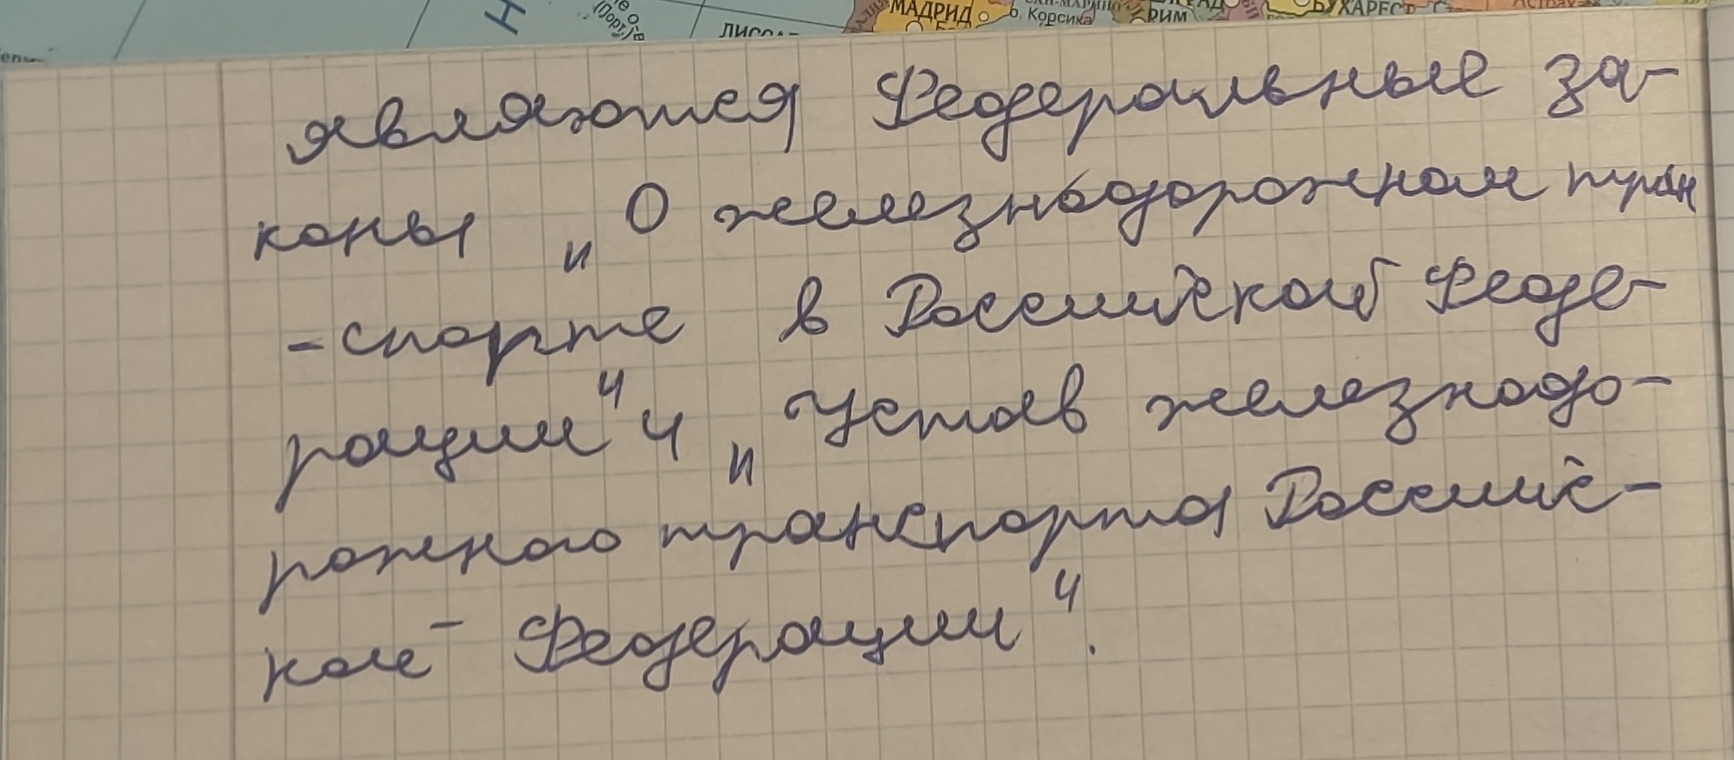 МАДРИД
о. Корсика
РИМ
БУХАРЕСТ
являются Федеральные за-
коны „О железнодорожном тран
-спорте в Российской Феде-
рации“ и „Устав железнодо-
рожного транспорта Россий-
кой Федерации“.